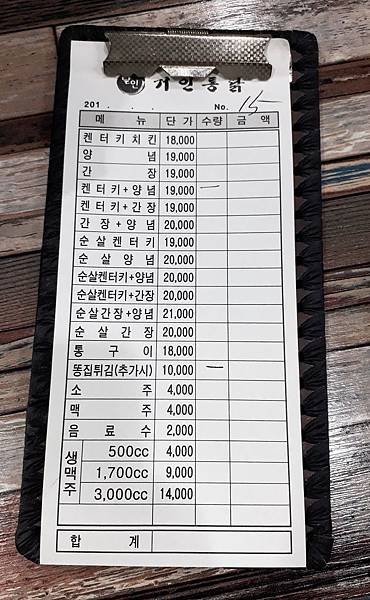 거인 거인통닭
201 . . . No. 15
메 뉴 단 가 수량 금 액
켄터키치킨 18,000
양 념 19,000
간 장 19,000
켄터키+양념 19,000 一
켄터키+간장 19,000
간장+양념 20,000
순살켄터키 19,000
순살양념 20,000
순살켄터키+양념 20,000
순살켄터키+간장 20,000
순살간장+양념 21,000
순살간장 20,000
통 구 이 18,000
똥집튀김(추가시) 10,000 一
소 주 4,000
맥 주 4,000
음 료 수 2,000
생맥주 500cc 4,000
1,700cc 9,000
3,000cc 14,000
합 계